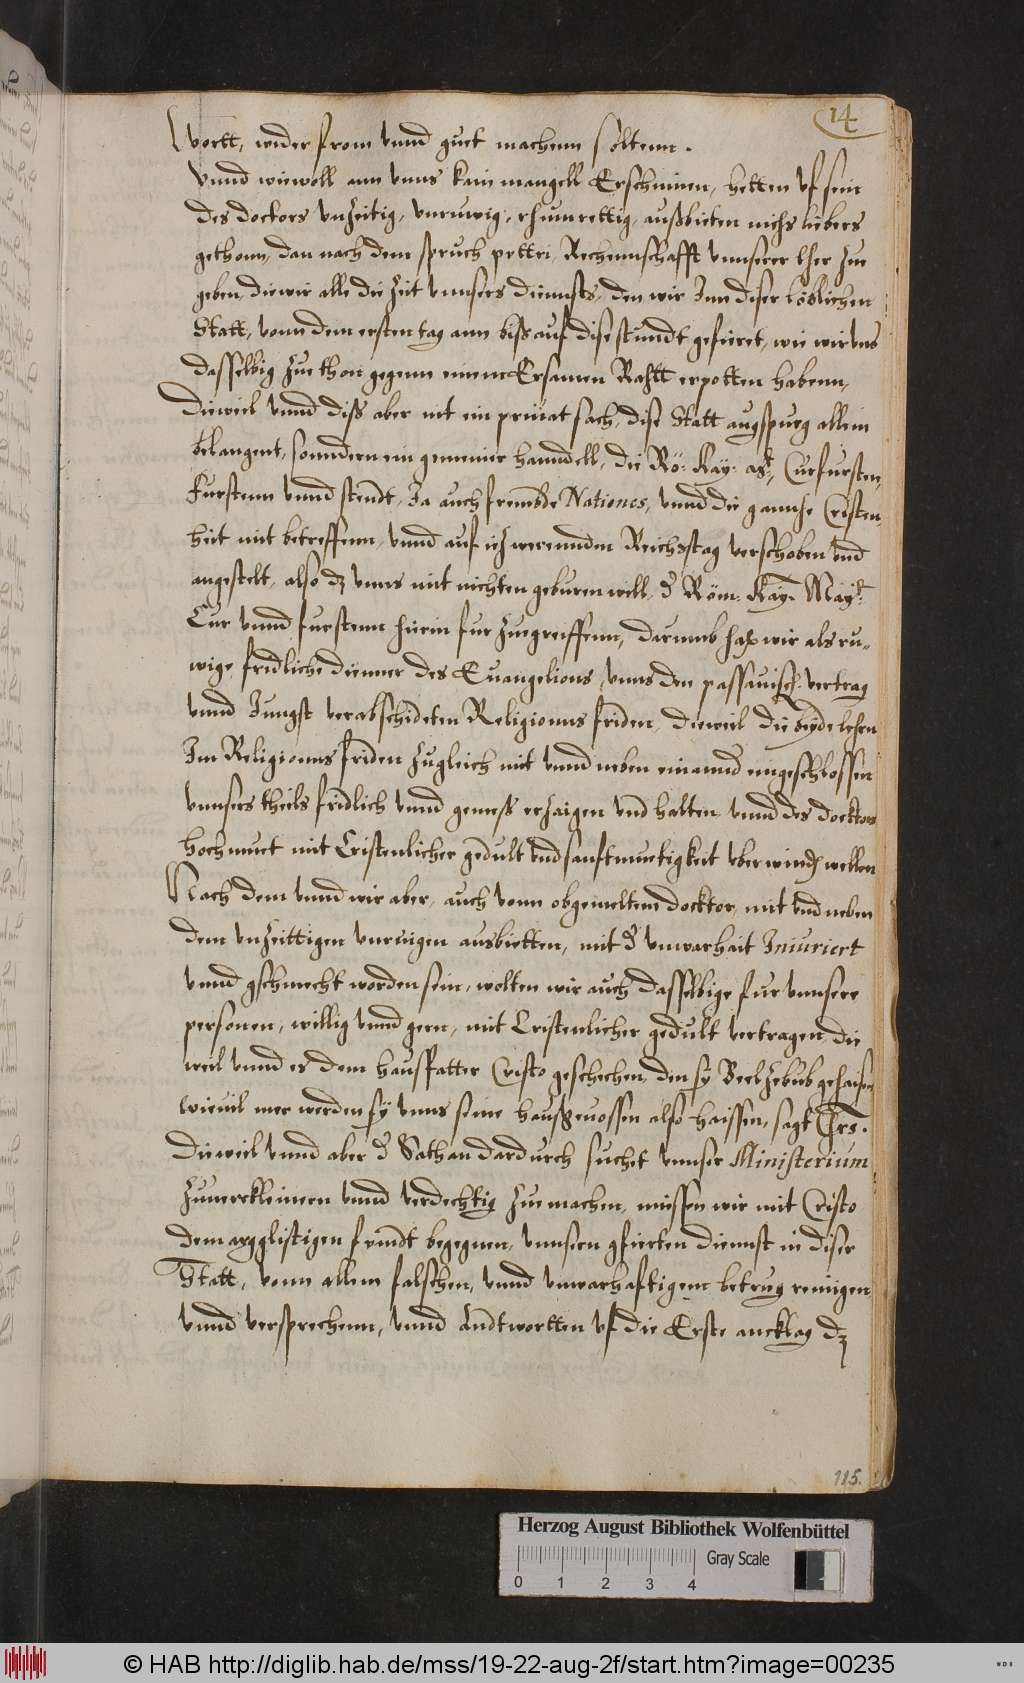 14
wortt, wider from vnnd guet machenn soltenn.
Vnnd wiewoll ann vnns kain mangell Erschinen, hetten vf sein
des doctors vnzeitig, vnruwig, rhumrettig, außbieten nichs liebers
gethonn, dan nach dem spruch pettri, Rechennschafft vnnserer lher zue
geben, die wir alle die Zeit vnnsers diennsts, den wir Inn diser loblichen
Statt, vonn dem ersten tag ann biß auf dise stundt gefieret, wie wir vns
dasselbig zue thon gegenn einem Ersamen Rahtt erpotten habenn,
Dieweil vnnd diß aber nit ein priuat sach, dise Statt augspurg allein
belangent, sonndern ein gemeiner hanndell, die Rö: Kay: Mt:, Curfursten,
Furstenn vnnd stendt, Ja auch frembde Nationes, vnnd die gannze Cristen
heit mit betreffenn, vnnd auf ich werennden Reichstag verschoben vnd
angestelt, also dz vnns mit nichten geburen will, d Röm: Kay: May:t
Cur vnnd furstenn hierin fur zuegreiffenn, darumb hab wir als ru-
wige fridliche diener des Euangelions, vnns den passauisch vertrag
vnnd Jungst verabschideten Religionns friden, dieweil die beyde lehrn
Im Religionns friden zugleich mit vnnd neben einannd eingeschlossen
vnnsers theils fridlich vnnd gemeß erzaigen vnd halten vnnd des docktors
hochmuet mit Cristenlicher gedult vnd sanftmuetigkeit vberwinden wellen
Nach dem vnnd wir aber, auch vonn obgemeltem docktor, mit vnd neben
dem vnzeittigen vnruigen ausbietten, mit d vnwarhait Iniuriert
vnnd gschmecht worden sein, wolten wir auch dasselbige fur vnnsere
personen, willig vnnd gern, mit Cristenlicher gedult vertragen, die
weil vnnd es dem hausfatter Cristo geschechen, den sy Beelzebub gehaisen
wieuil mer werden sy vnns seine haußgnossen also haissen, sagt Chrs.
Dieweil vnnd aber d Sathan dardurch suchet vnnser Ministerium
zuuerckleinern vnnd verdechtig zue machen, miessen wir mit Cristo
dem argglistigen feindt begegnen, vnnsern gfierten diennst in diser
Statt, vonn allem falschen, vnnd vnwarhaftigem betrug reinigen
vnnd versprechenn, vnnd Andtwortten vf die Erste ancklag dz
115.
Herzog August Bibliothek Wolfenbüttel
Gray Scale
0 1 2 3 4
© HAB http://diglib.hab.de/mss/19-22-aug-2f/start.htm?image=00235